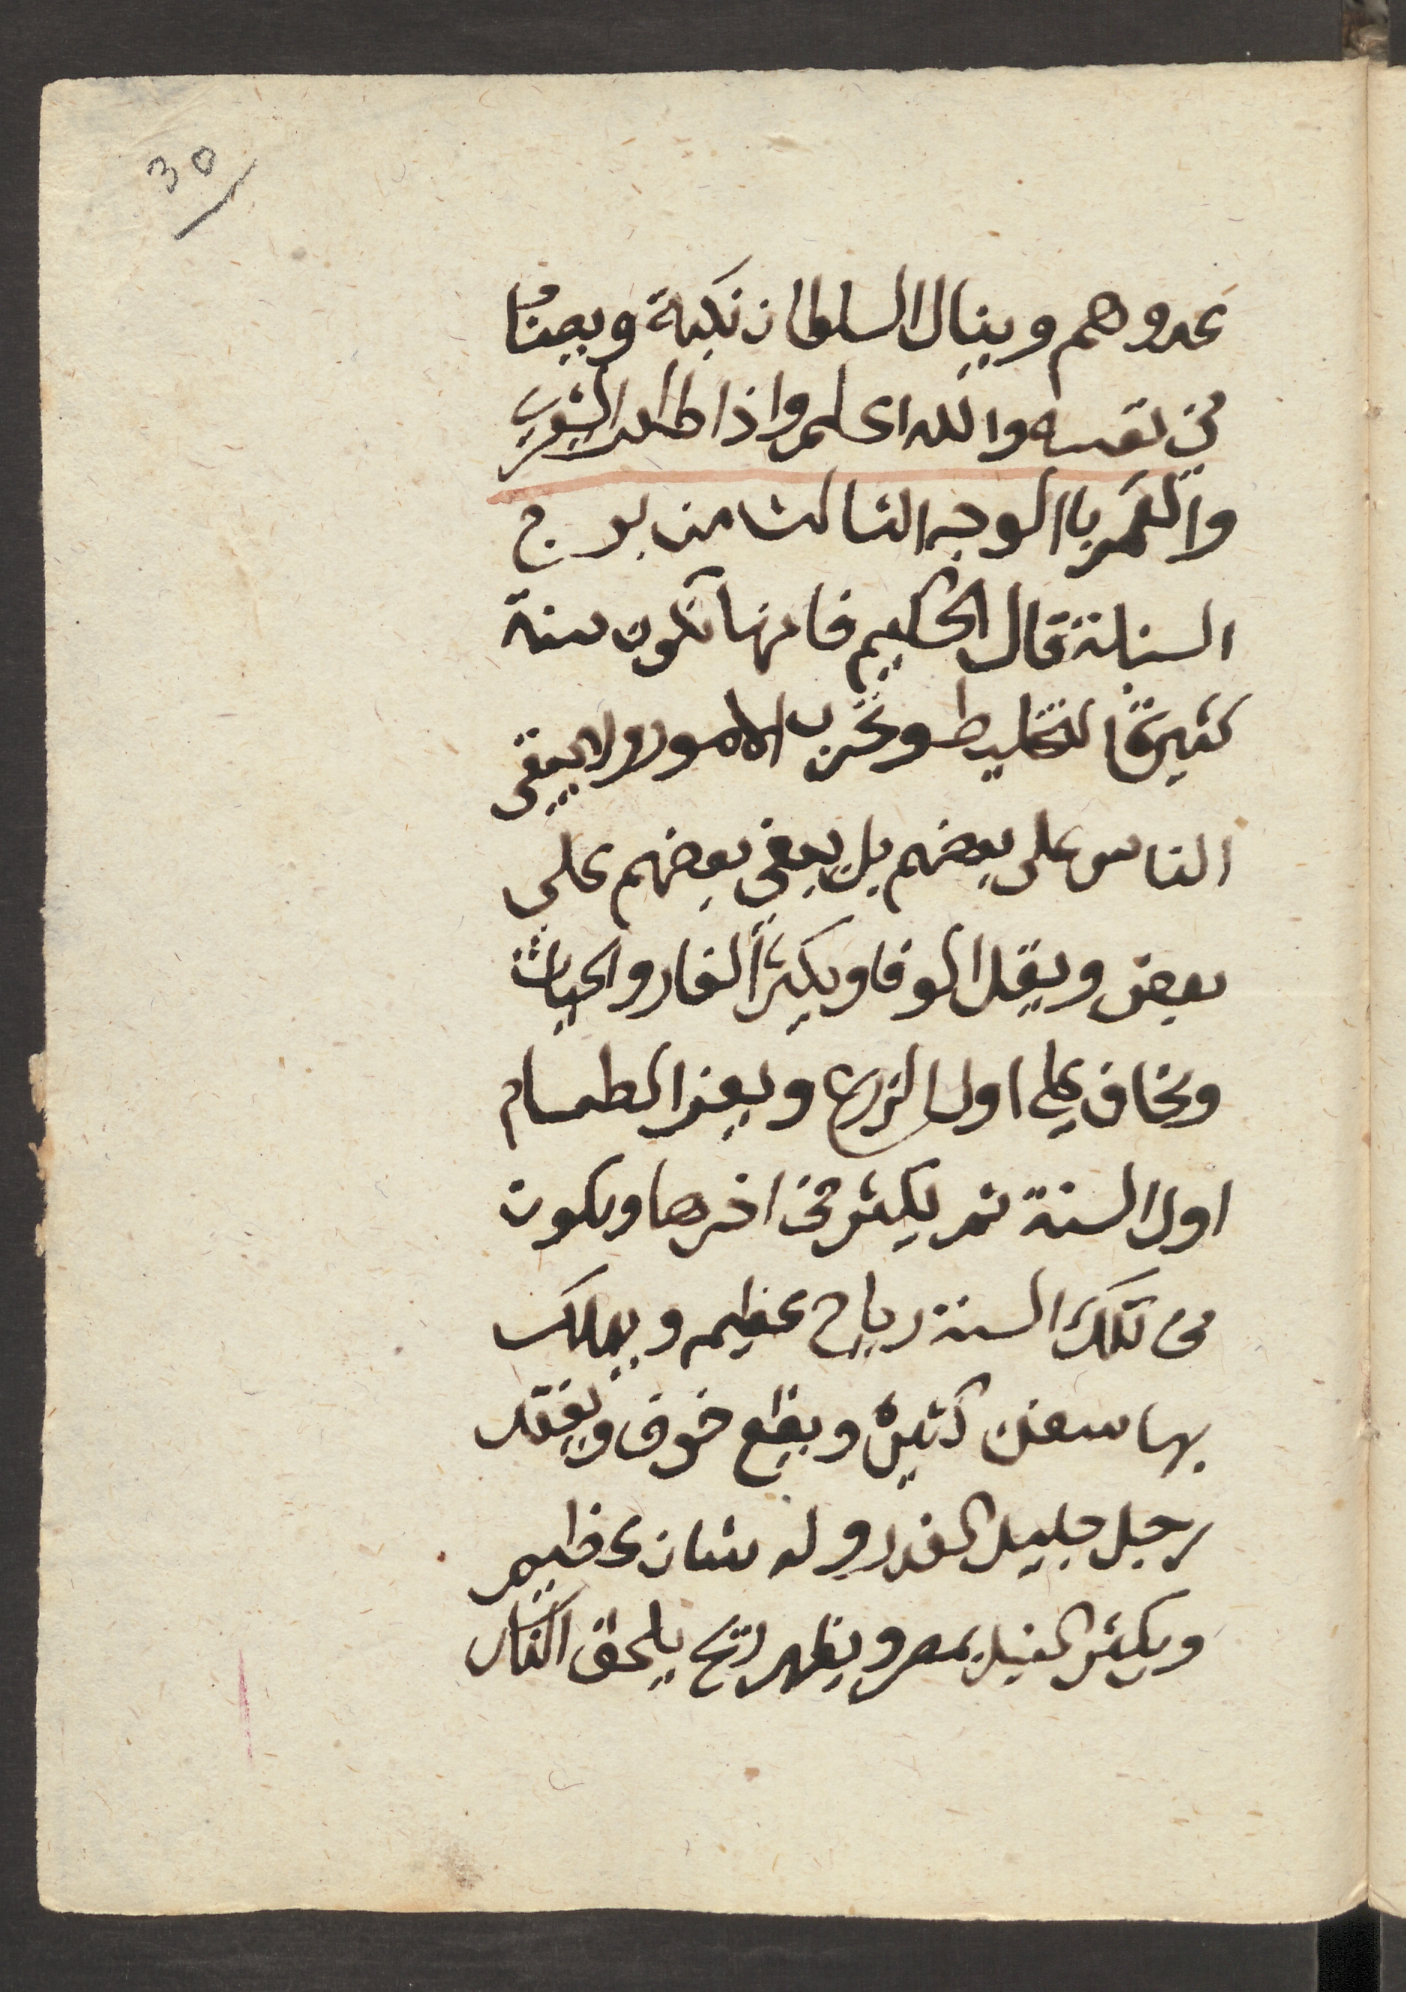 30
عدوهم وينال السلطان نكبة وبعضا
في نفسه والله اعلم واذا طلعت الشعرى
والقمر باالوجه الثالث من برج
السنبلة قال الحكيم فانها تكون سنة
كثيرة التخليط وتخرب الامور ولا يبقى
الناس على بعضهم بل يبغي بعضهم على
بعض ويقل الوفا ويكثر الفار والحيات
ويخاف على اول الزرع ويعز الطعام
اول السنة ثم يكثر في اخرها ويكون
في تلك السنة رياح عظيم ويهلك
بها سفن كثيرة ويقع خوف ويفقد
رجل جليل القدر وله شان عظيم
ويكثر النيل بمصر ويظهر ريح يلحق الناس